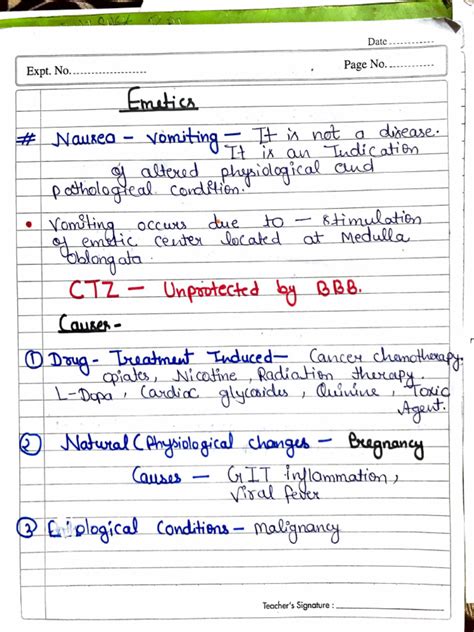 Date
Expt. No.
Page No.
Emetics
# Nausea - vomiting - It is not a disease.
It is an Indication
of altered physiological and
pathological condition.
• Vomiting occurs due to - stimulation
of emetic center located at Medulla
Oblongata.
CTZ - Unprotected by BBB.
Causes -
① Drug - Treatment Induced - Cancer chemotherapy,
opiates, Nicotine, Radiation therapy.
L-Dopa, Cardiac glycosides, Quinine, Toxic
Agent.
② Natural (Physiological changes - Pregnancy
Causes - GIT inflammation,
Viral fever
③ Conditions - malignancy
Teacher's Signature :